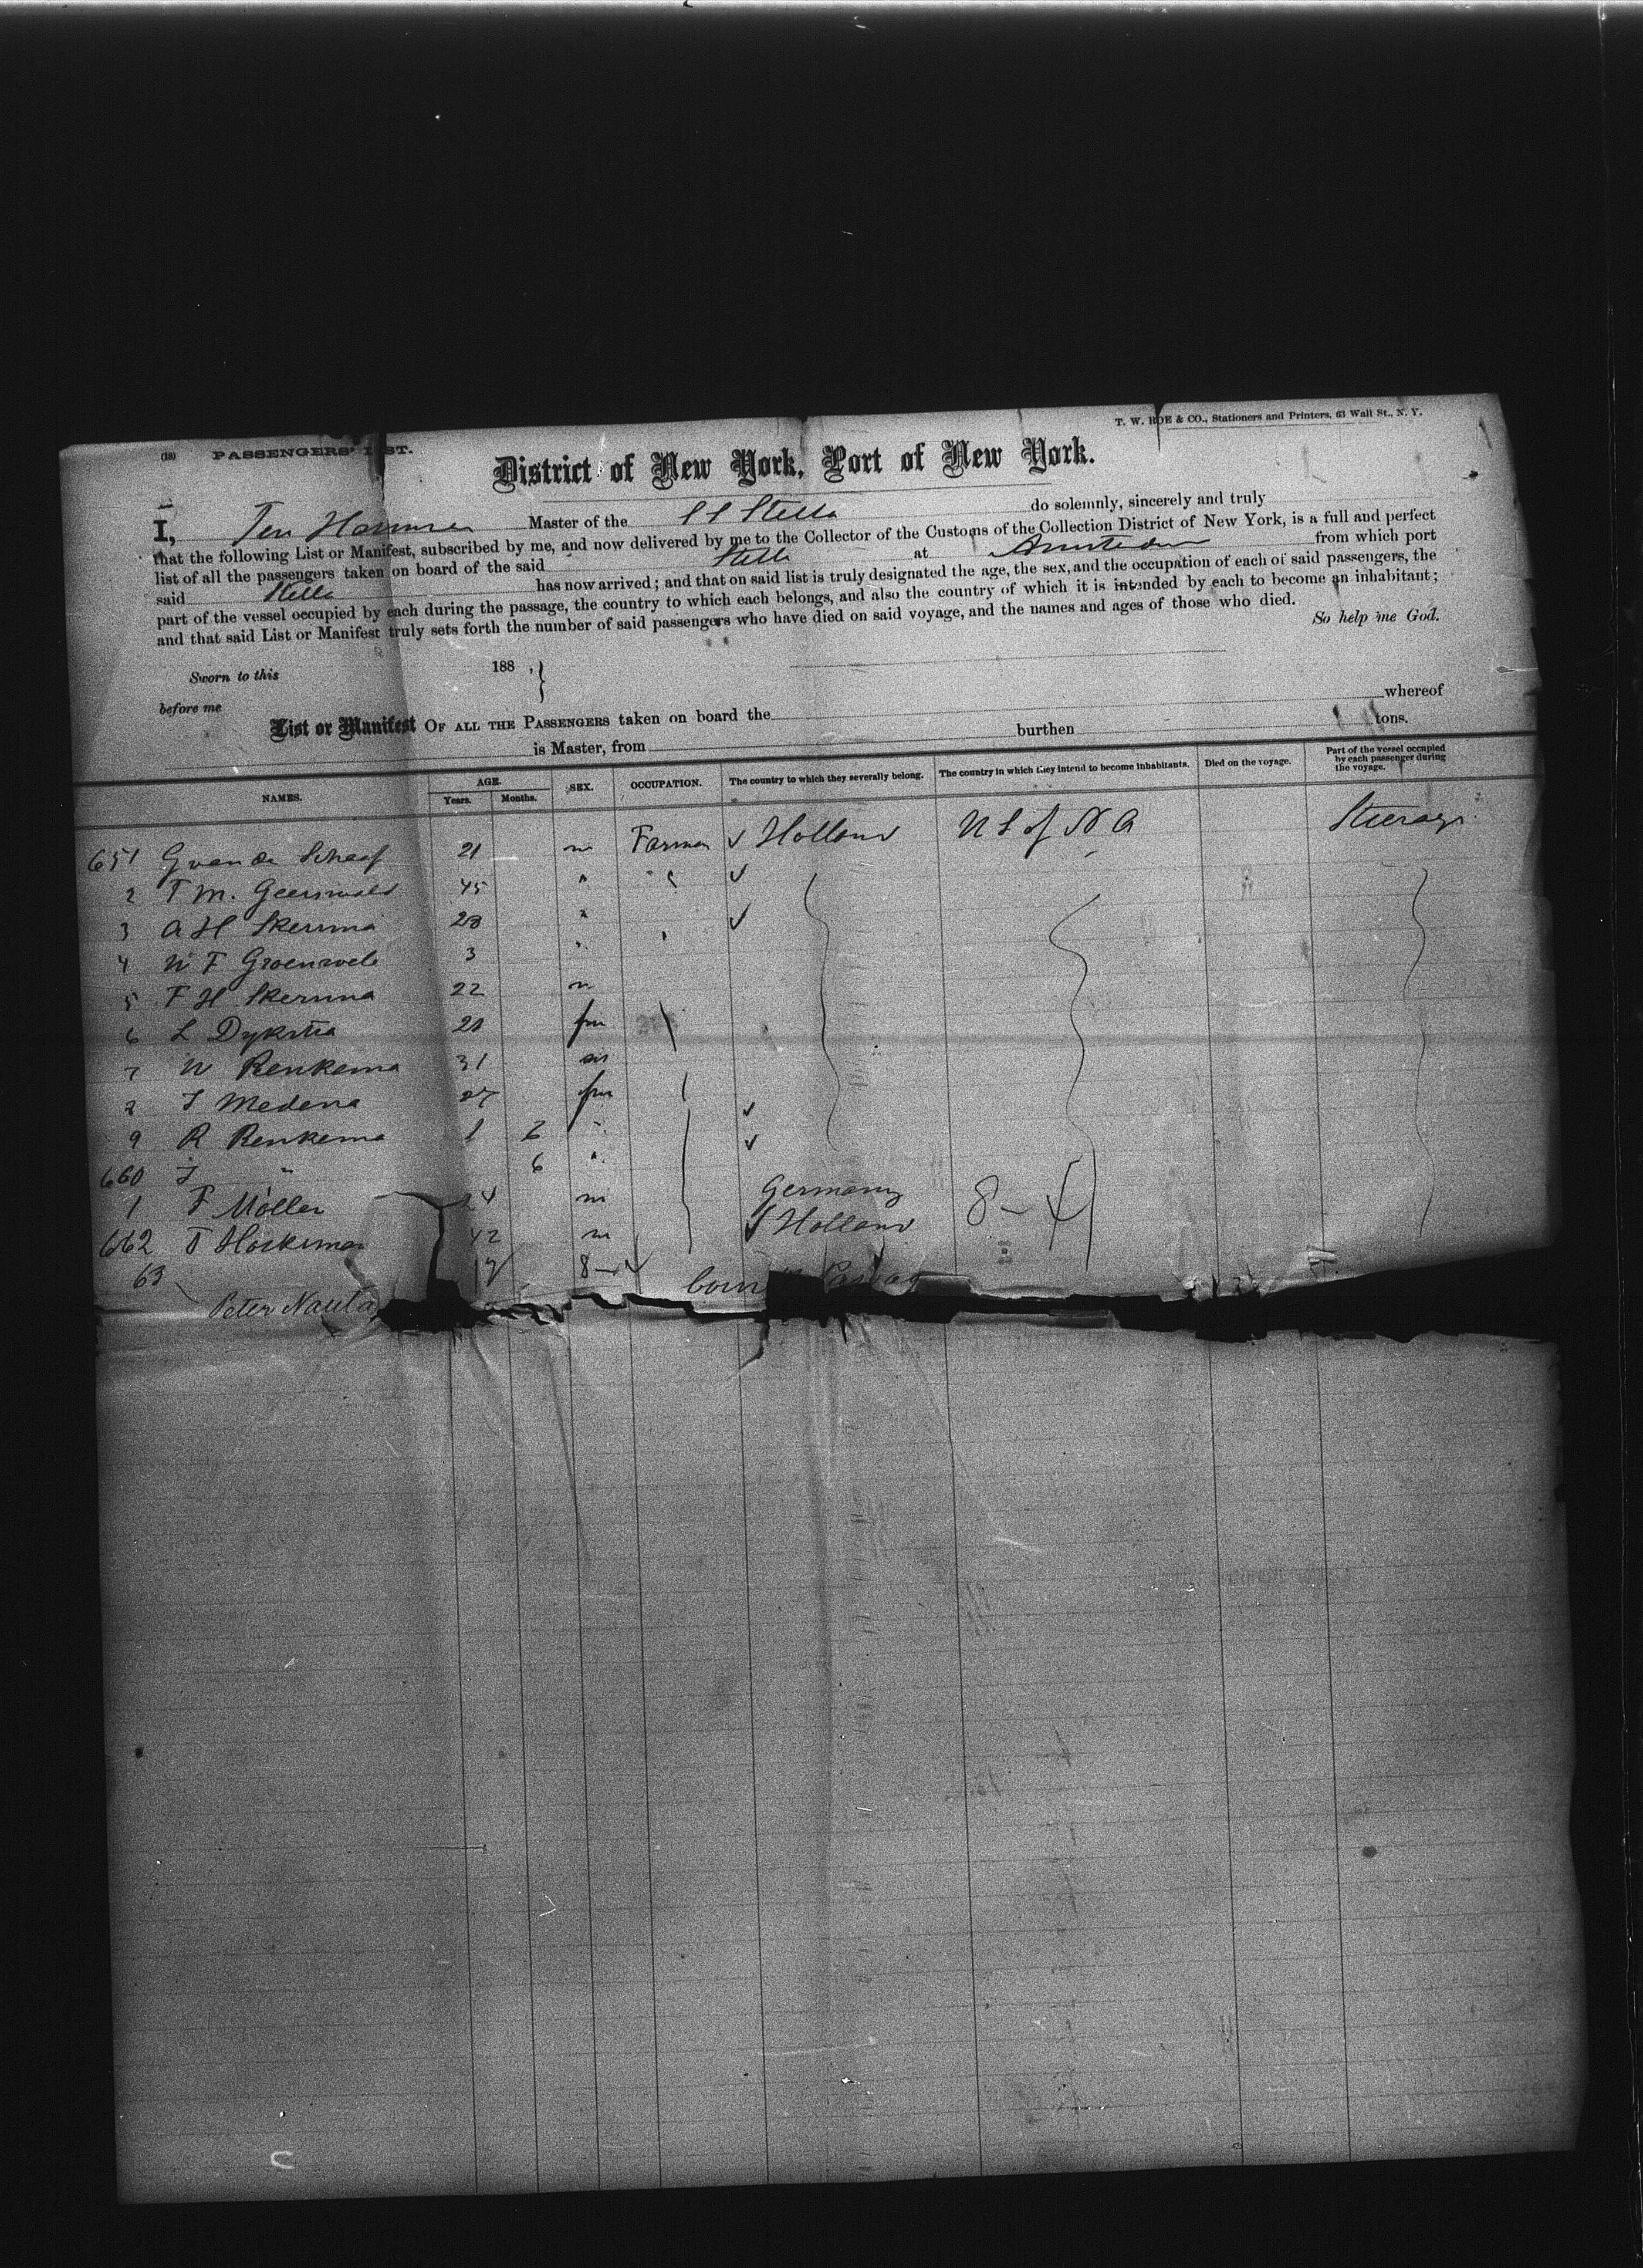 T. W. ROE & CO., Stationers and Printers, 63 Wall St., N. Y.
(18) PASSENGERS' LIST.
District of New York, Port of New York.
I, Ten Master of the SS Stella do solemnly, sincerely and truly
that the following List or Manifest, subscribed by me, and now delivered by me to the Collector of the Customs of the Collection District of New York, is a full and perfect
list of all the passengers taken on board of the said Stella at Amsterdam from which port
said Stella has now arrived; and that on said list is truly designated the age, the sex, and the occupation of each of said passengers, the
part of the vessel occupied by each during the passage, the country to which each belongs, and also the country of which it is intended by each to become an inhabitant;
and that said List or Manifest truly sets forth the number of said passengers who have died on said voyage, and the names and ages of those who died.
So help me God.
Sworn to this 188 ,}
before me
List or Manifest OF ALL THE PASSENGERS taken on board the whereof
is Master, from burthen tons.
NAMES. AGE. Years. Months. SEX. OCCUPATION. The country to which they severally belong. The country in which they intend to become inhabitants. Died on the voyage. Part of the vessel occupied by each passenger during the voyage.
651 G van der Schaaf 21 m Farmer √ Holland U S of N A Steerage
2 T M. 45 " " √
3 A H Skerma 28 " " √
4 W F 3 "
5 F H Skerma 22 m
6 L Dykstra fm
7 W Renkema 31 m
8 Medena 27 fm
9 R Renkema 1 6 " √
660 " 6 " √
1 F Möller 24 m Germany 8 – 4
662 T Hoekema 42 m √ Holland
63 Peter Nauta 8 – 4 born